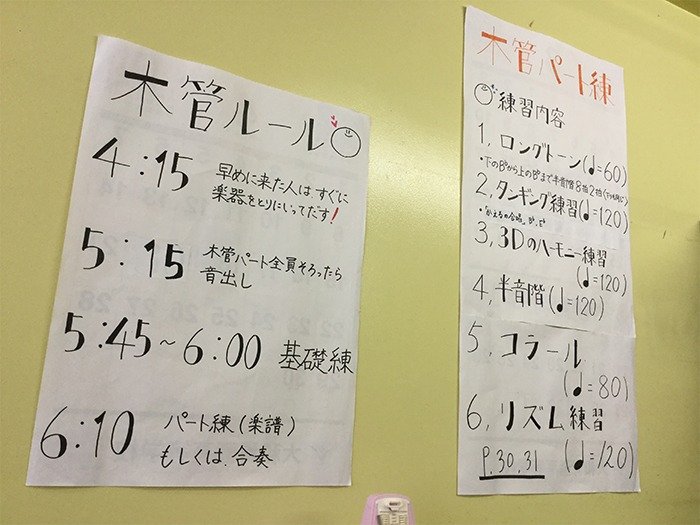 木管ルール
4:15 早めに来た人は、すぐに
楽器をとりにいってだす!
5:15 木管パート全員そろったら
音出し
5:45～6:00 基礎練
6:10 パート練(楽譜)
もしくは、合奏
木管パート練
練習内容
1, ロングトーン(♩=60)
2, タンギング練習(♩=120)
3, 3Dのハーモニー練習
(♩=120)
4, 半音階(♩=120)
5, コラール
(♩=80)
6, リズム練習
P.30,31 (♩=120)